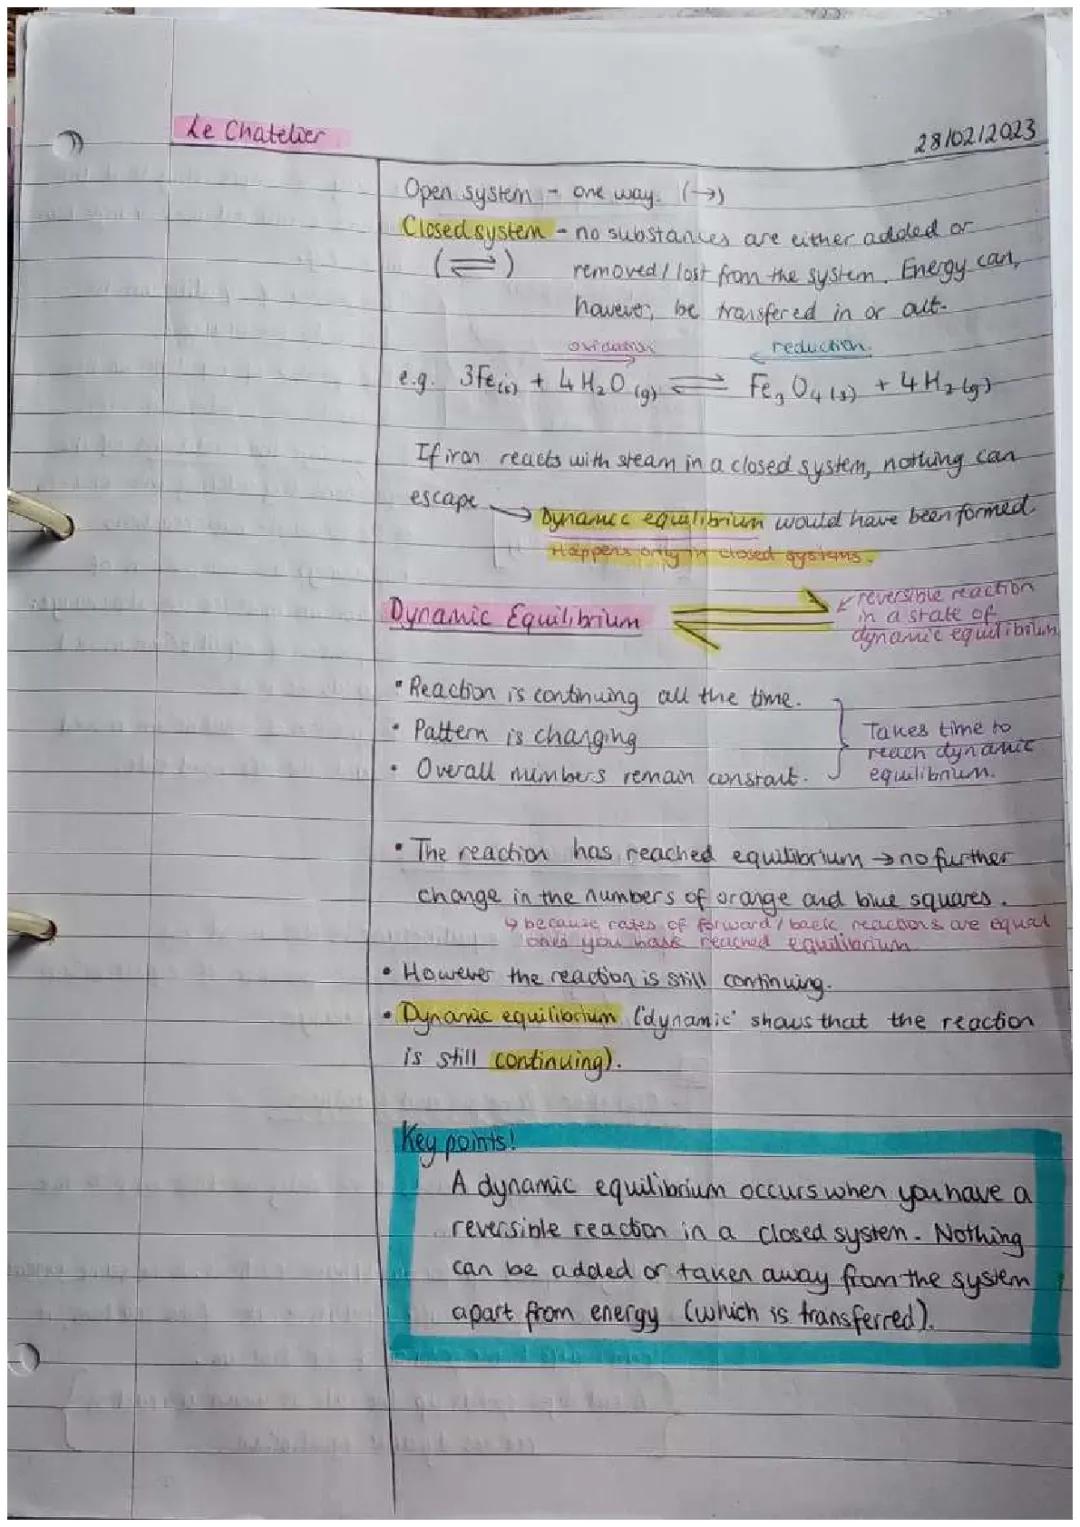 Le Chatelier
28/02/2023
Open system - one way. (→)
Closed system - no substances are either added or
(⇌) removed / lost from the system. Energy can,
however, be transfered in or out.
oxidation reduction.
e.g. 3Fe(s) + 4H₂O(g) ⇌ Fe₃O₄(s) + 4H₂(g)
If iron reacts with steam in a closed system, nothing can
escape → Dynamic equilibrium would have been formed.
Happens only in closed systems.
Dynamic Equilibrium ⇌
reversible reaction
in a state of
dynamic equilibrium
• Reaction is continuing all the time.
• Pattern is changing
• Overall numbers remain constant.
Takes time to
reach dynamic
equilibrium.
• The reaction has reached equilibrium → no further
change in the numbers of orange and blue squares.
↳ because rates of forward / back reactions are equal
once you have reached equilibrium
• However the reaction is still continuing.
• Dynamic equilibrium ('dynamic' shows that the reaction
is still continuing).
Key points!
A dynamic equilibrium occurs when you have a
reversible reaction in a closed system. Nothing
can be added or taken away from the system
apart from energy (which is transferred).